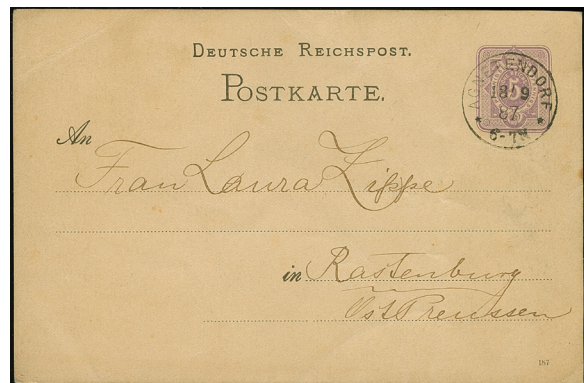 DEUTSCHE REICHSPOST.
POSTKARTE.
AGNETENDORF
18 9
87
6-7N
5
An
Frau Laura Zippe
in Rastenburg
Ost Preussen
187